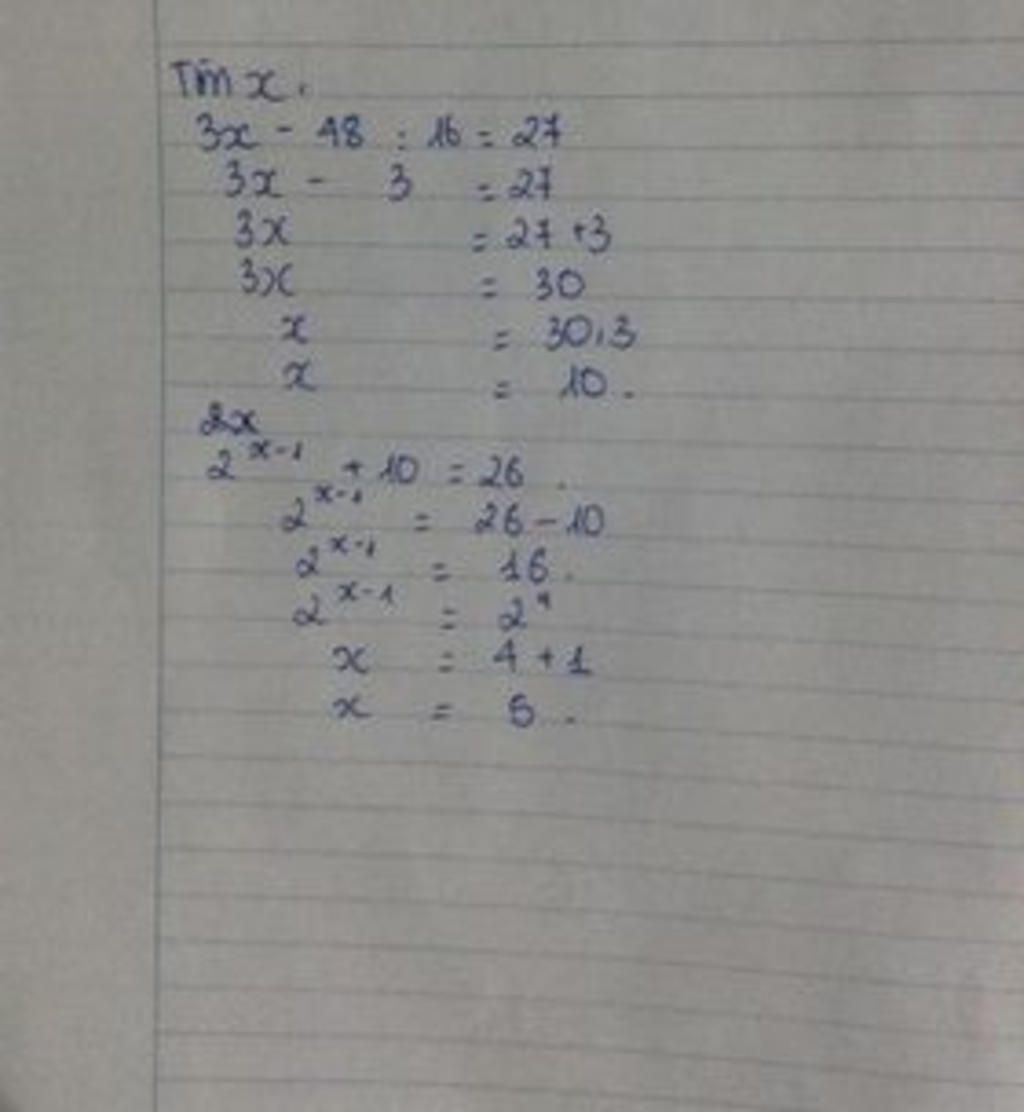 Tìm x.
3x - 48 : 16 = 27
3x - 3 = 27
3x = 27 + 3
3x = 30
x = 30:3
x = 10.
2x
2^{x-1} + 10 = 26.
2^{x-1} = 26 - 10
2^{x-1} = 16.
2^{x-1} = 2^4
x = 4 + 1
x = 5.